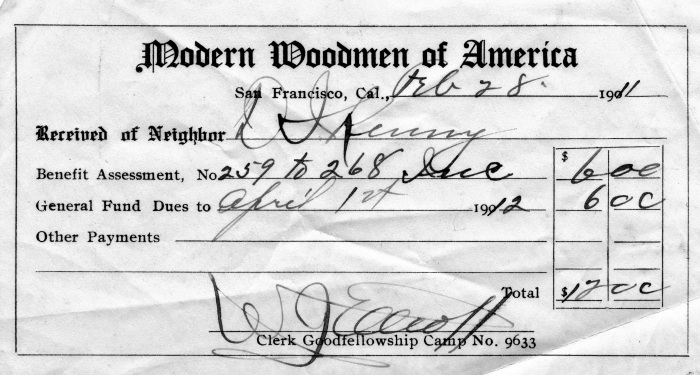 Modern Woodmen of America
San Francisco, Cal., Feb 28. 1911
Received of Neighbor D J Kenny
Benefit Assessment, No. 259 to 268 Inc $ 6 00
General Fund Dues to April 1st 1912 6 00
Other Payments
Total $ 12 00
W J
Clerk Goodfellowship Camp No. 9633